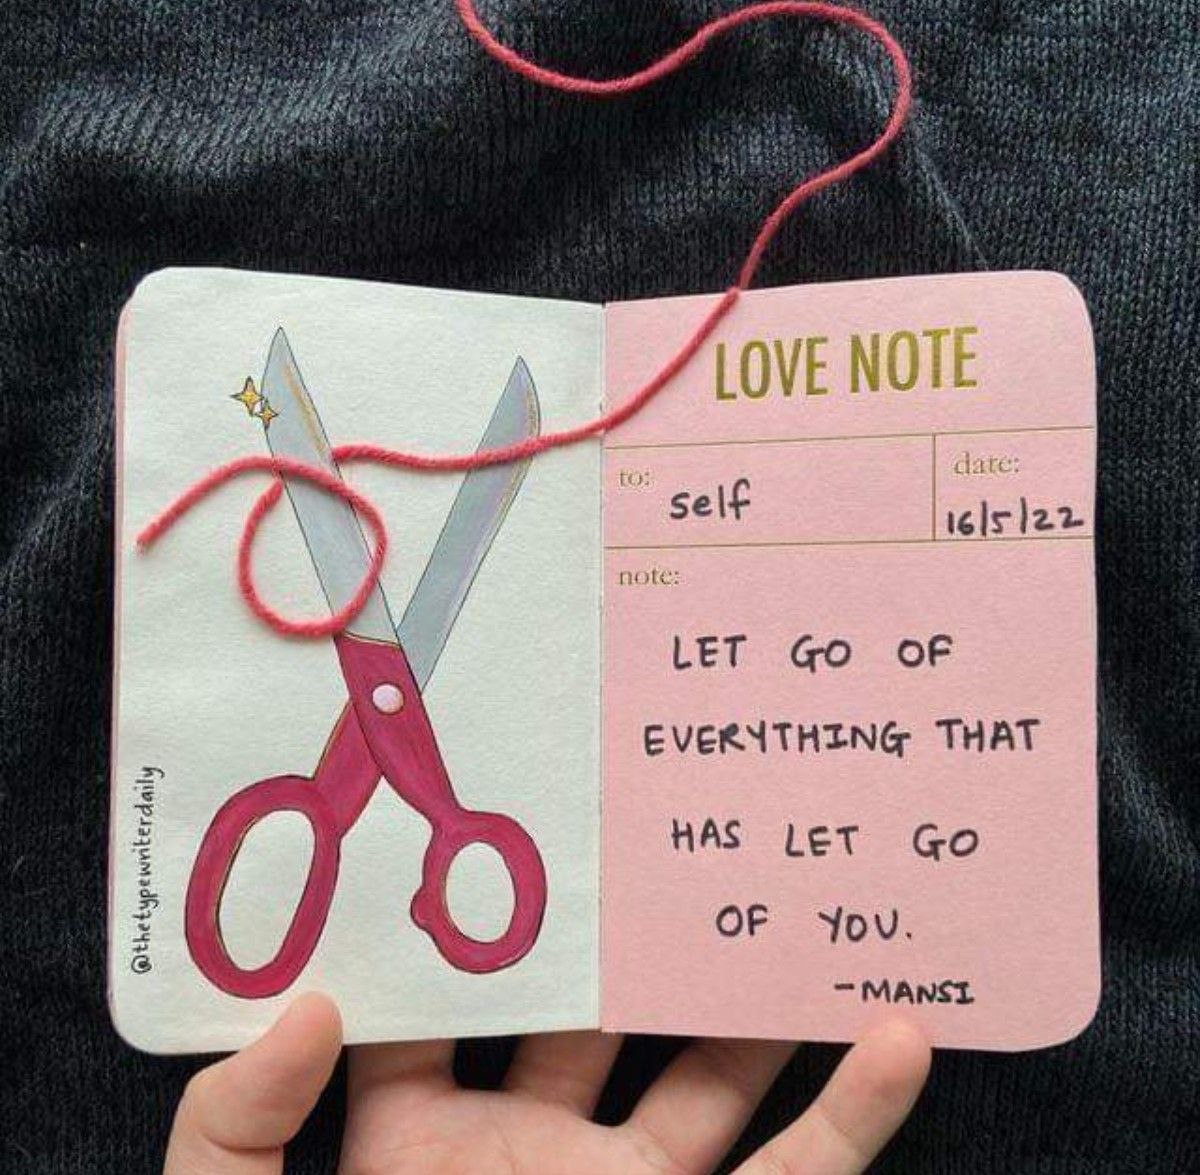 @thetypewriterdaily
LOVE NOTE
to: self
date: 16/5/22
note:
LET GO OF
EVERYTHING THAT
HAS LET GO
OF YOU.
-MANSI